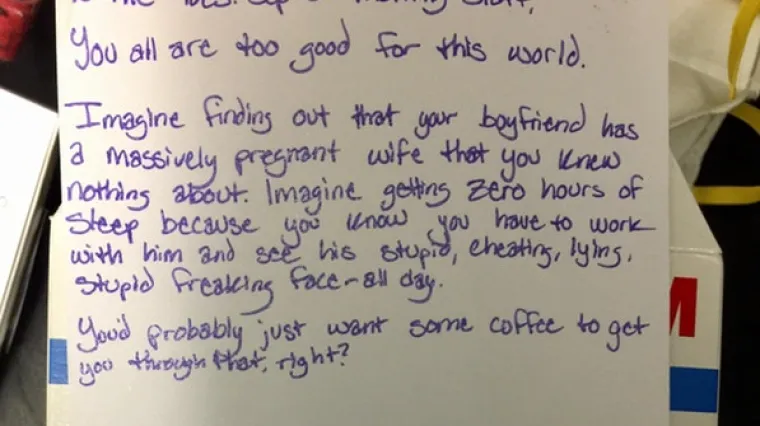 the Morning Staff,
You all are too good for this world.
Imagine finding out that your boyfriend has
a massively pregnant wife that you knew
nothing about. Imagine getting zero hours of
sleep because you know you have to work
with him and see his stupid, cheating, lying,
stupid freaking face-all day.
You'd probably just want some coffee to get
you through that, right?
M